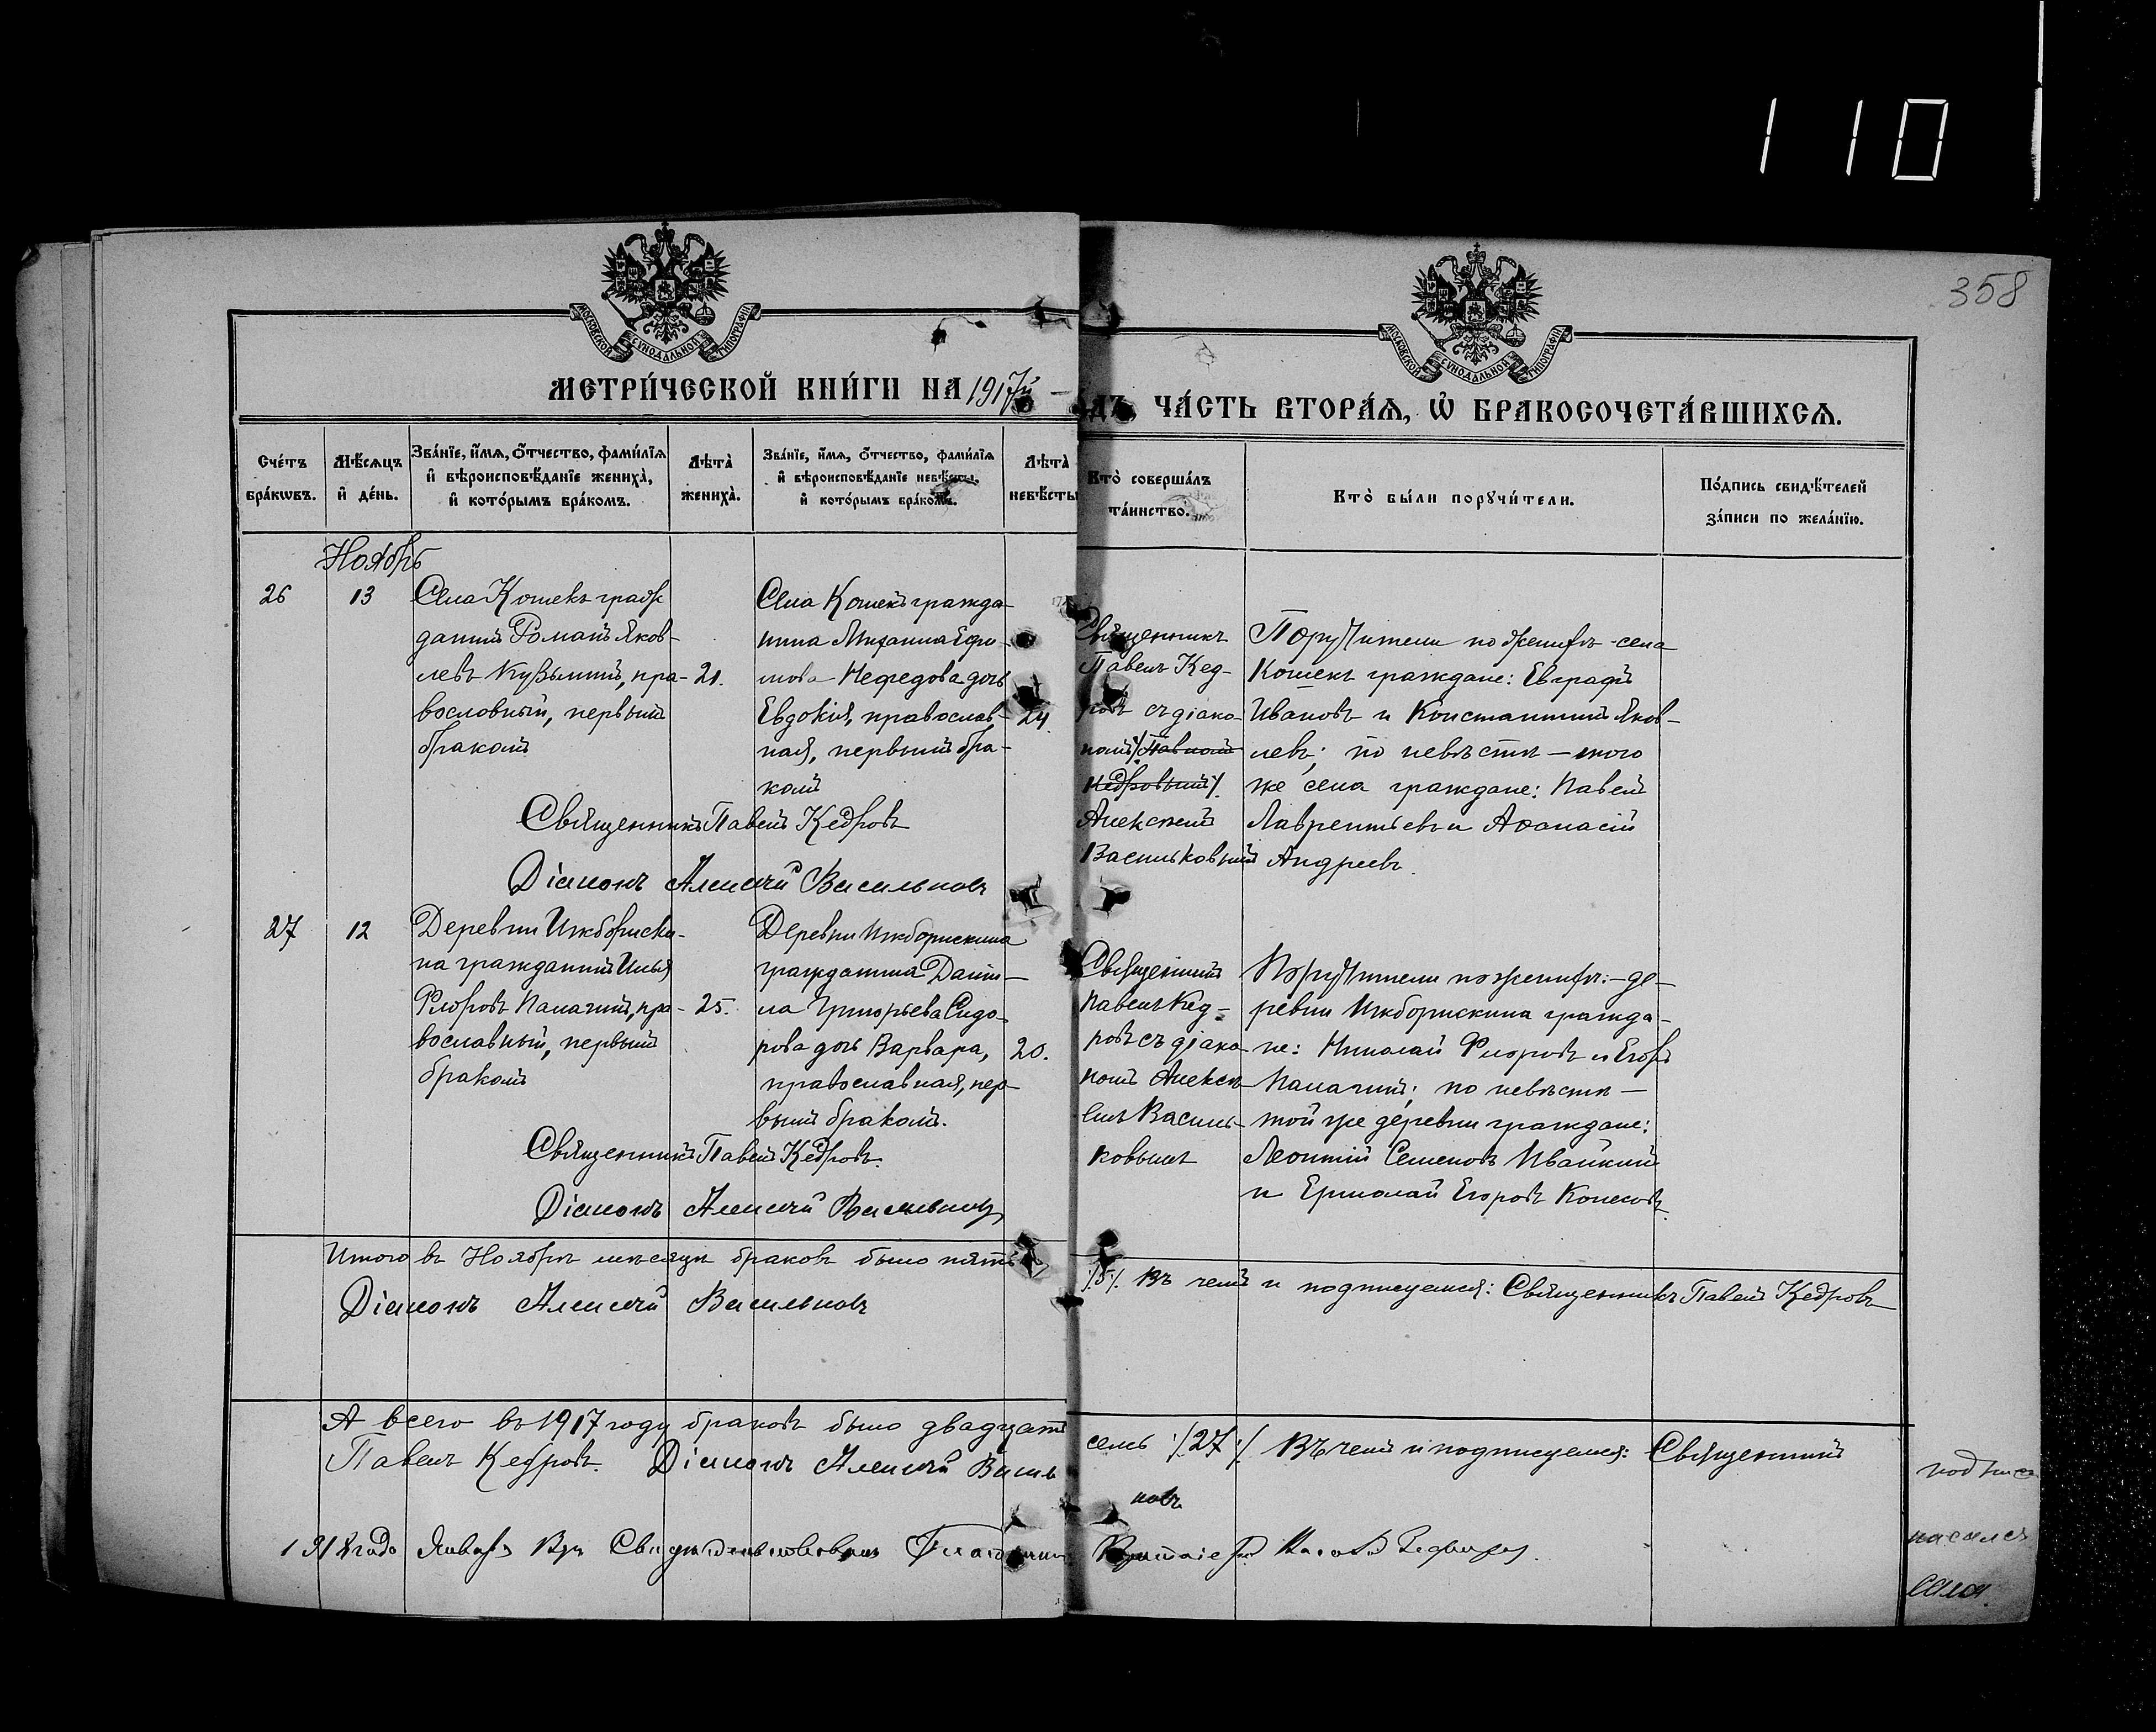 110
358
МОСКОВСКОЙ СѴНОДАЛЬНОЙ ТИПОГРАФІИ
МОСКОВСКОЙ СѴНОДАЛЬНОЙ ТИПОГРАФІИ
МЕТРИ́ЧЕСКОЙ КНИ́ГИ НА 1917й
ДЪ, ЧА́СТЬ ВТОРА́Ѧ, Ѽ БРАКОСОЧЕТА́ВШИХСѦ.
Сче́тъ бра́кѡвъ.
Мѣ́сяцъ и҆ де́нь.
Зва́нїе, и҆́мѧ, ѻ҆́тчество, фами́лїѧ и҆ вѣроисповѣ́данїе жениха̀, и҆ кото́рымъ бра́комъ.
Лѣта̀ жениха̀.
Зва́нїе, и҆́мѧ, ѻ҆́тчество, фами́лїѧ и҆ вѣроисповѣ́данїе невѣ́сты, и҆ кото́рымъ бра́комъ.
Лѣта̀ невѣ́сты
Кто̀ соверша́лъ та́инство.
Кто̀ бы́ли порꙋчи́тели.
По́дпись свидѣ́телей за́писи по жела́нїю.
Ноябрь
26
13
Села Кошекъ граж
данинъ Романъ Яков-
левъ Кузьминъ, пра-
вословный, первымъ
бракомъ
21.
Села Кошекъ гражда-
нина Михаила Ефи-
мова Нефедова дочь
Евдокія, православ-
ная, первымъ бра-
комъ
24.
Священникъ
Павелъ Кед-
ровъ съ діако-
номъ Павломъ
Кедровымъ
Алексѣемъ
Васильковымъ
Поручители по женихѣ - села
Кошекъ граждане: Евграфъ
Ивановъ и Константинъ Яков-
левъ; по невѣстѣ — того
же села граждане: Павелъ
Лаврентьевъ и Аѳанасій
Андреевъ.
Священникъ Павелъ Кедровъ
Діаконъ Алексѣй Васильковъ
27
12
Деревни Ижбориски-
на гражданинъ Илья
Флоровъ Палагинъ, пра-
вославный, первымъ
бракомъ
25.
Деревни Ижборискина
гражданина Дани-
ла Григорьева Сидо-
рова дочь Варвара,
православная, пер-
вымъ бракомъ.
20.
Священникъ
Павелъ Кед-
ровъ съ діако-
номъ Алексѣ-
емъ Василь-
ковымъ
Поручители по женихѣ: - де-
ревни Ижборискина гражда-
не: Николай Флоровъ и Егоръ
Палагинъ; по невѣстѣ —
той же деревни граждане:
Леонтій Семеновъ
и Ермолай Егоровъ
Священникъ Павелъ Кедровъ.
Діаконъ Алексѣй Васильковъ
Итого въ Ноябрѣ мѣсяцѣ браковъ было пять
/5/. Въ чемъ и подписуемся: Священникъ Павелъ Кедровъ
Діаконъ Алексѣй Васильковъ
А всего въ 1917 году браковъ было двадцать
семь /27/. Въ чемъ и подписуемся: Священникъ
Павелъ Кедровъ. Діаконъ Алексѣй Василь
ковъ
1918 года Января